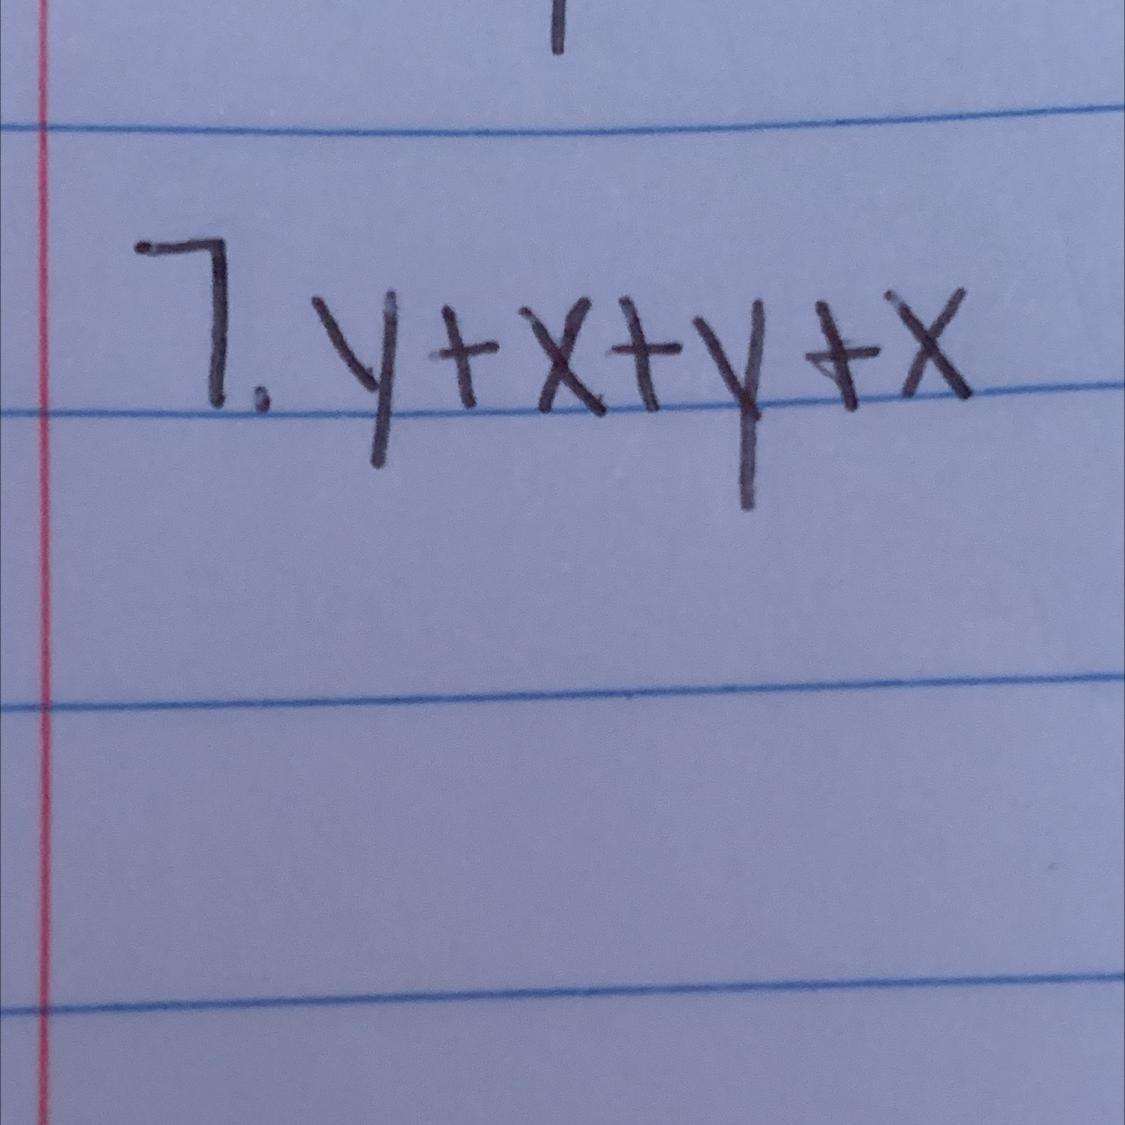 7. y+x+y+x